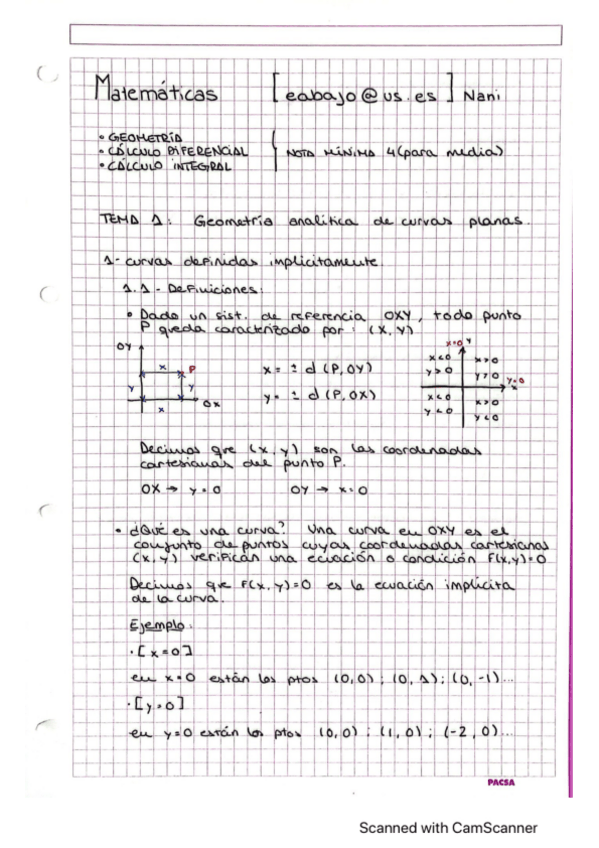 Matemáticas [eabajo@us.es] Nani
• GEOMETRÍA
• CÁLCULO DIFERENCIAL
• CÁLCULO INTEGRAL
NOTA MÍNIMA 4 (para media)
TEMA 1: Geometría analítica de curvas planas.
1- curvas definidas implícitamente.
1.1- Definiciones:
• Dado un sist. de referencia OXY, todo punto
P queda caracterizado por: (x, y)
OY
x P
y y
x
OX
x = ± d (P, OY)
y = ± d (P, OX)
x=0 y
x<0 x>0
y>0 y>0
y=0
x
x<0 x>0
y<0 y<0
Decimos que (x, y) son las coordenadas
cartesianas del punto P.
OX → y=0 OY → x=0
• ¿Qué es una curva? Una curva en OXY es el
conjunto de puntos cuyas coordenadas cartesianas
(x, y) verifican una ecuación o condición F(x,y)=0
Decimos que F(x, y)=0 es la ecuación implícita
de la curva.
Ejemplo:
·[x=0]
en x=0 están los ptos (0,0); (0,1); (0,-1)...
·[y=0]
en y=0 están los ptos (0,0); (1,0); (-2,0)...
PACSA
Scanned with CamScanner